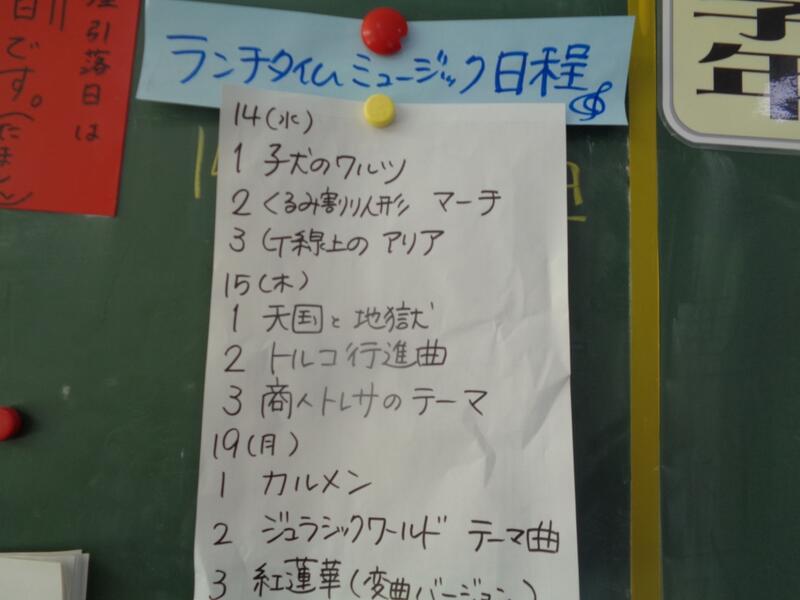 ランチタイムミュージック日程
14(水)
1 子犬のワルツ
2 くるみ割り人形 マーチ
3 G線上の アリア
15(木)
1 天国と地獄
2 トルコ行進曲
3 商人トレサのテーマ
19(月)
1 カルメン
2 ジュラシックワールド テーマ曲
3 紅蓮華(変曲バージョン)
引落日は
日です。
学年